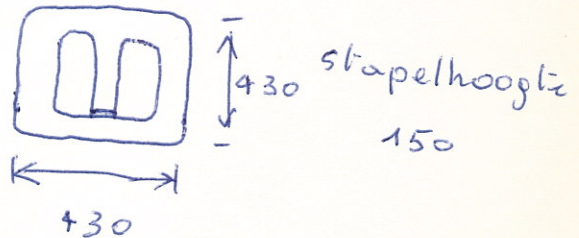 430
stapelhoogte
150
430